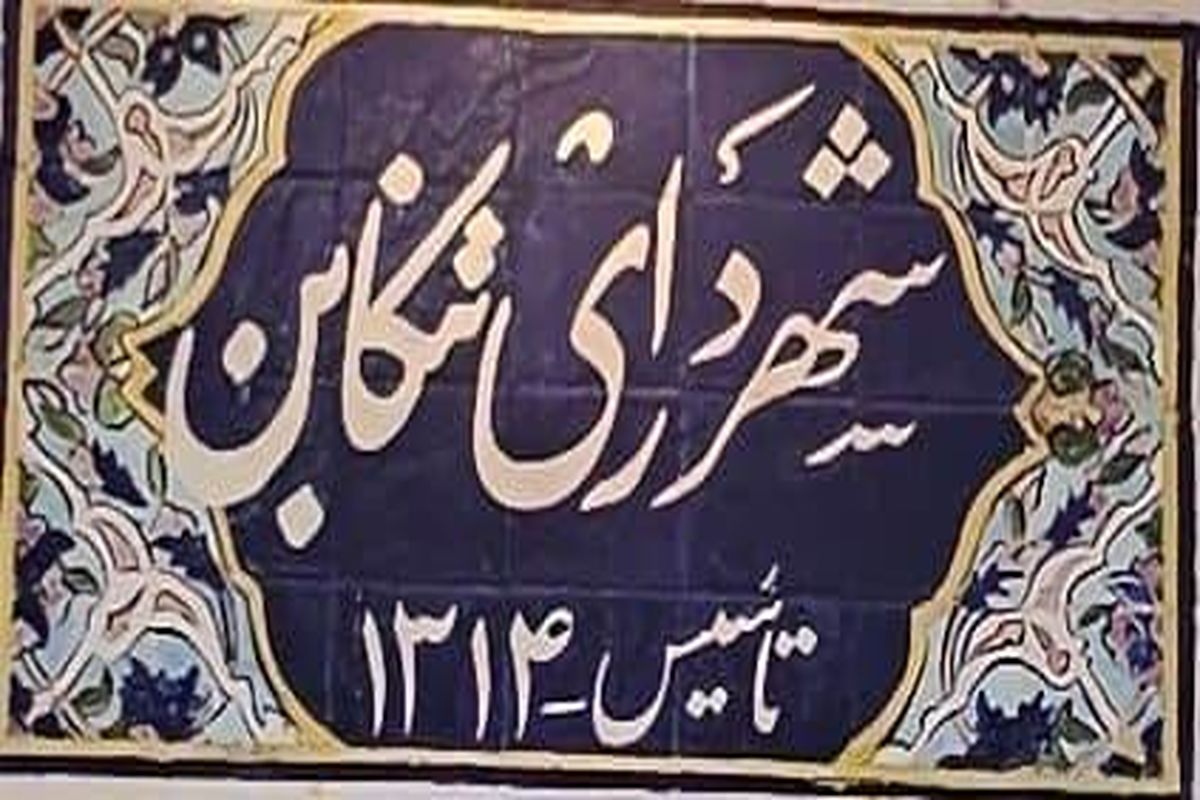 شهرداری تنکابن
تأسیس - ۱۳۱۴